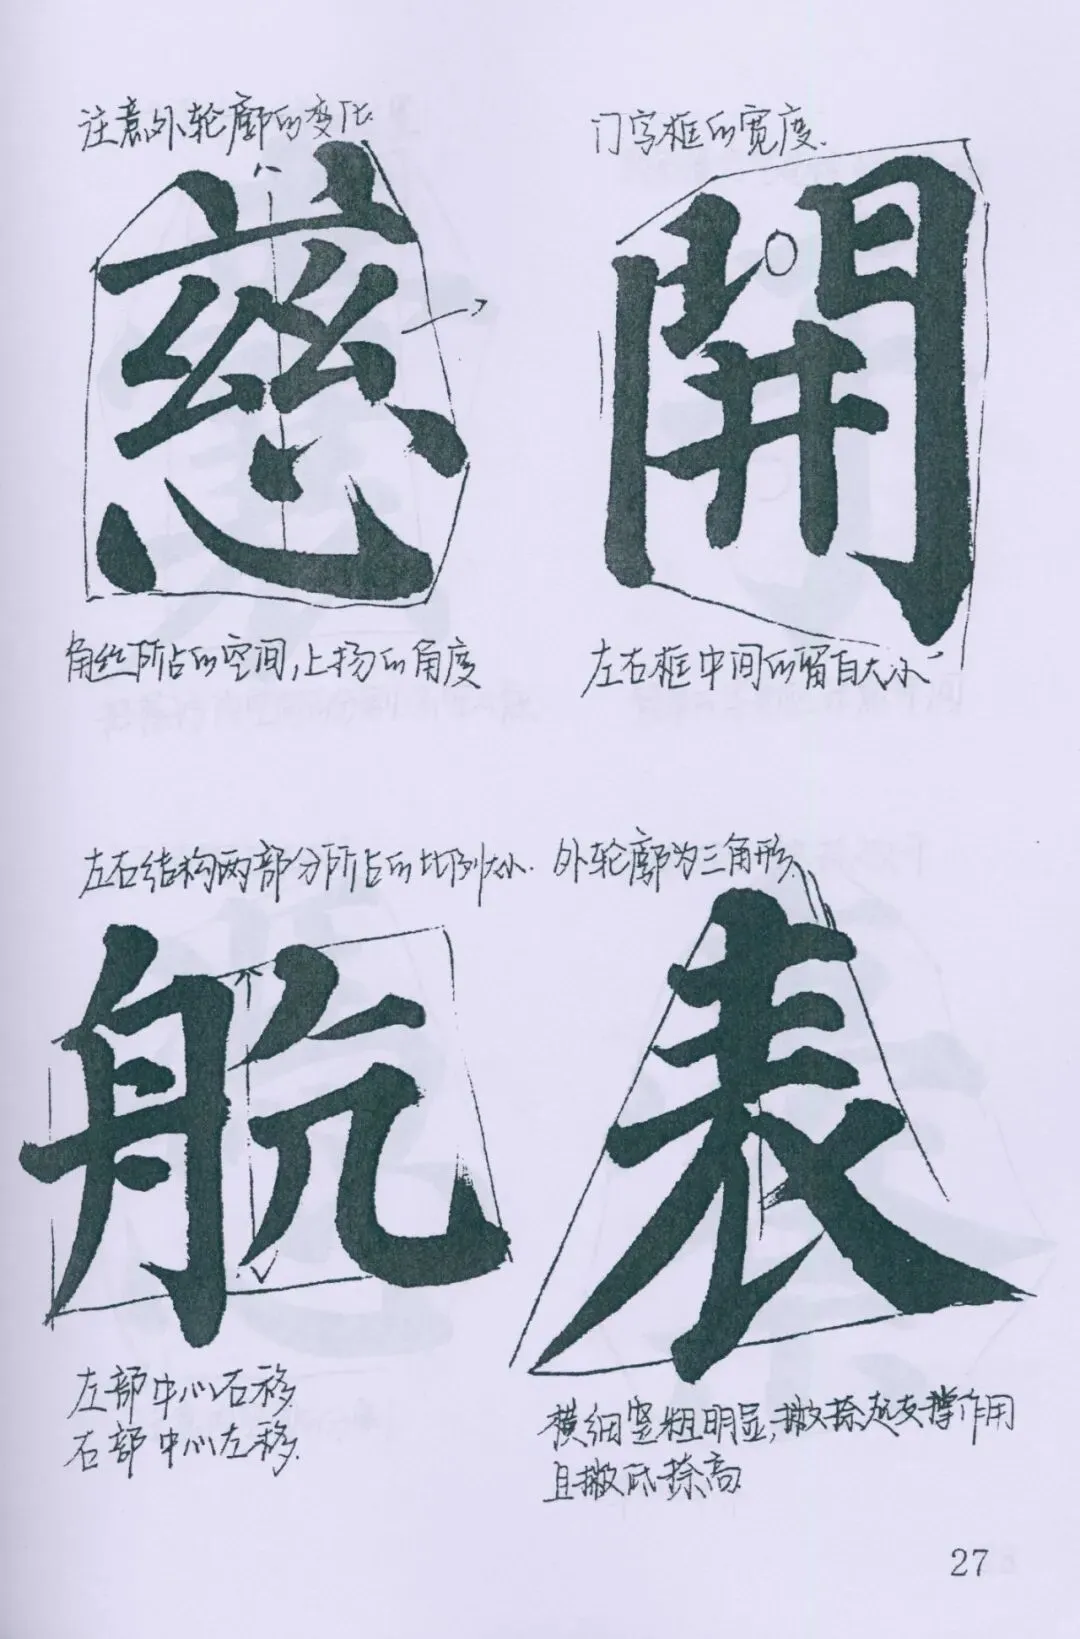 注意外轮廓的变化.
门字框的宽度.
慈
開
角丝所占的空间,上扬的角度
左右框中间的留白大小
左右结构两部分所占的比例大小.
外轮廓为三角形.
航
表
左部中心右移.
右部中心左移.
横细竖粗明显,撇捺起支撑作用
且撇低捺高.
27